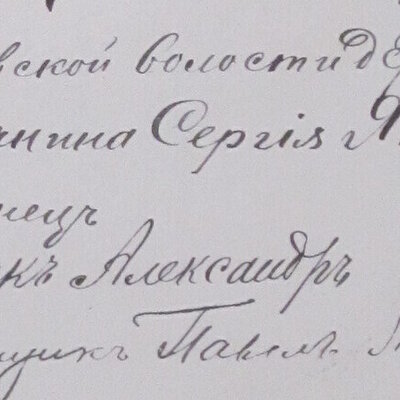 вской волости де
янина Сергія Я
нецъ
къ Александръ
щикъ Павелъ